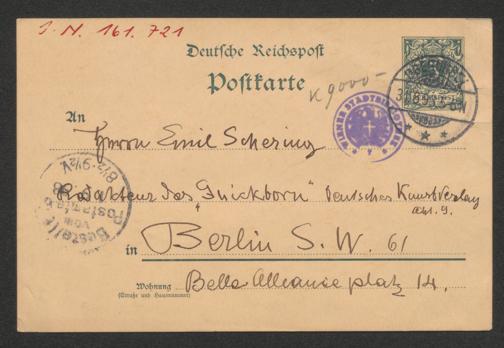 J. N. 161.721
Deutsche Reichspost
Postkarte
K 9000-
WIENER STADTBIBLIOTHEK
An
Herrn Emil Schering
Redakteur des "Quickborn" Deutsches Kunstverlag
Abt. 9.
Bestellt
vom
Postamte
8½-9½V
in
Berlin S. W. 61
Belle Alliance platz 14.
Wohnung
(Straße und Hausnummer)